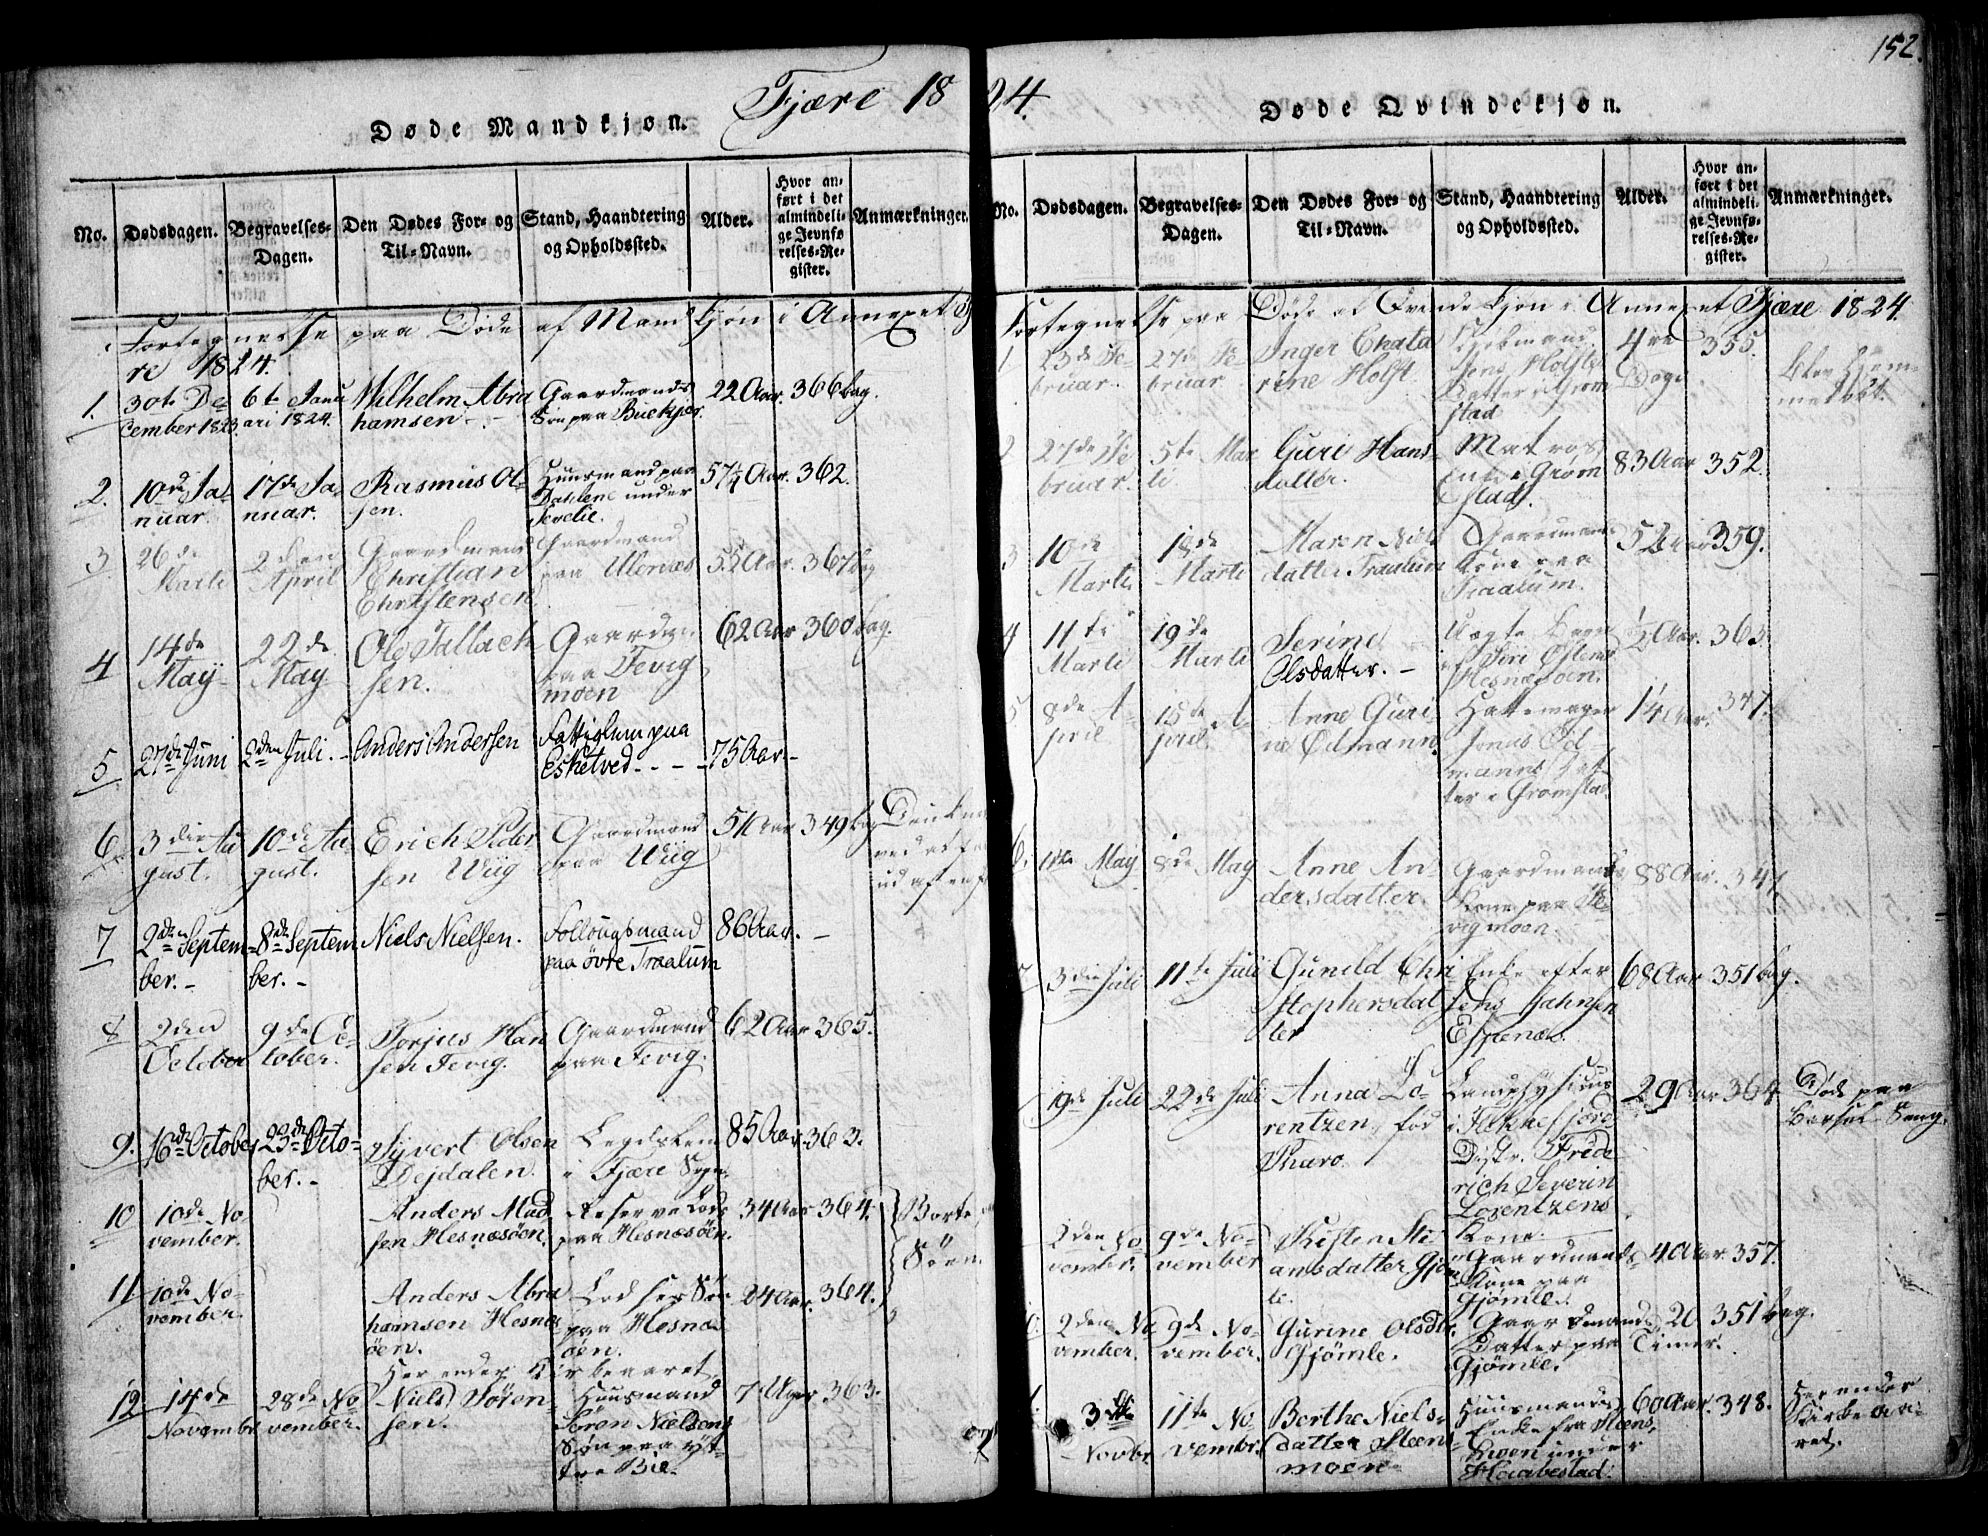 152.
Fjære 1824.
Døde Mandkjøn.
No.
Dødsdagen.
Begravelses-
Dagen.
Den Dødes For- og
Til-Navn.
Stand, Haandtering
og Opholdssted.
Alder.
Hvor an-
ført i det
almindeli-
ge Jevnfø
relses-Re-
gister.
Anmærkninger.
Fortegnelse paa Døde af Mandkjøn i Annexet Fjæ
re 1824.
1.
30te De-
cember 1823.
6te Janu
ari 1824.
Wilhelm Abra
hamsen
Gaardmands
Søn paa Buekjer.
22 Aar.
366 bag.
2.
10de Ja-
nuar.
17de Ja-
nuar.
Rasmus Ol-
sen.
Huusmand paa
Dahlene under
Tevelie.
57¼ Aar.
362.
3
26de
Marti
2den
April
Gaardmand
Christian
Christensen
Gaardmand
paa Ulenæs
55 Aar.
367 bag
4
14de
May
22de
May
Ole Tallach
sen.
Gaardm
paa Fevig
moen
62 Aar
360 bag.
5
27de Juni
2den Juli.
Anders Andersen
Fattiglem paa
Esketved
75 Aar
6
3die Au
gust.
10de Au-
gust.
Erich Peder
sen Wiig
Gaardmand
paa Wiig
51 Aar
349 bag
ved at fa
ud af en
7
2den Septem-
ber.
8de Septem
ber.
Niels Nielsen.
Follougsmand
paa øvre Traalum
86 Aar.
8
2den
October
9de Oc-
tober.
Torjus Han
sen Fevig.
Gaardmand
paa Fevig.
62 Aar
365.
9.
16de October
23de Octo-
ber.
Syvert Olsen
Dejdalen
Legdslem
i Fjære Sogn
85 Aar
363.
10
10de No-
vember.
Anders Mad
sen Hesnæsøen.
Reserve Lods
paa Hesnæsøen.
34 Aar
364.
Borte
Søen
11
10de No-
vember.
Anders Abra
hamsen Hesnæs
øen.
Lodses Søn
paa Hesnæ
øen.
24 Aar.
364.
Her ender Kirkeaaret
12
14de
Novembr
28de No
vember.
Niels Sören
sen.
Huusmand
Søren Nielsens
Søn paa yt-
tre Bie.
7 Uger
363.
Døde Qvindekjøn.
No.
Dødsdagen.
Begravelses-
Dagen.
Den Dødes For- og
Til-Navn.
Stand, Haandtering
og Opholdssted.
Alder.
Hvor an-
ført i det
almindeli-
ge Jevnfø-
relses-Re-
gister.
Anmærkninger.
Fortegnelse paa Døde af Qvindekjøn i Annexet Fjære 1824.
1
23de Fe
bruar.
27de Fe
bruar
Inger Chata
rine Holst
Skibmand
Jens Holsts
Datter i Grom
stad
4re
Døge
355.
Blev hjem-
medøbt.
2
27de Fe
bruar.
5te Mar
ti.
Guri Hans-
datter.
Matros
Enke i Grom
stad.
83 Aar
352.
3
10de
Marti
18de
Marti
Maren Niels
datter Traalum
Gaardmands
Kone paa
Traalum.
52 Aar
359.
4
11te
Marti
19de
Marti
Serine
Olsdatter.
Uægte Barn
af Siri Østens
Hesnæsøen.
½ Aar.
363.
5
8de A-
pril
15de A-
pril.
Anne Guri-
ne Ødmann.
Hattemager
Jonas Ød-
manns Dat-
ter i Gromstad
1¼ Aar.
347.
6.
1ste May
8de May
Anne An-
dersdatter
Gaardmands
Kone paa Fe-
vigmoen.
88 Aar.
347
7
3die Juli
11te Juli
Gunild Chri
stophersdat
ter
Enke efter
Jens Jahnsen
Espenæs.
68 Aar
351 bag.
19de Juli
22de Juli
Anna Lo-
rentzen, fød
Tharo.
Landphysicus
i Flekkefjord
Distr. Fride-
rich Severin
Lorentzens
Kone.
29 Aar
364
Død paa
Barsel Seng.
2den No
vembr.
9de No-
vember
Kisten Ste
ansdatter Gjøm
le.
Gaardmands-
Kone paa
Gjømle.
40 Aar.
357.
2den No
vember.
9de No-
vember.
Gurine Olsdtr.
Gjömle.
Gaardmands
Datter paa
Gjømle.
20
Timer.
351 bag.
3die
Novbr.
11te No-
vembr.
Berthe Niels-
datter Steens
moen
Huusmands
Enke fra Steens
moen under
Haabestad.
60 Aar.
348.
Her ender
Kirkeaa-
ret.